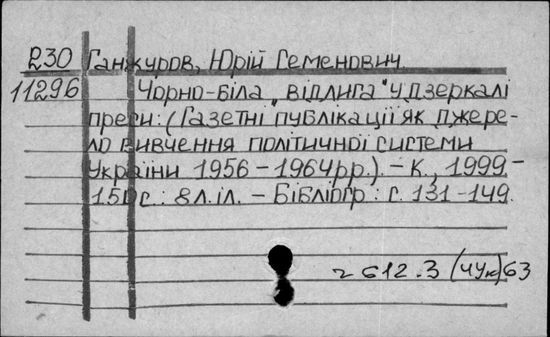 230 Ганжуров, Юрій Семенович.
11296 Чорно-біла „відлига" у дзеркалі
преси: (Газетні публікації як джере-
ло вивчення політичної системи
України 1956-1964рр.). - К., 1999. -
150с.: 8 л. іл. - Бібліогр.: с. 131-149.
612.3 (4Ук) 63